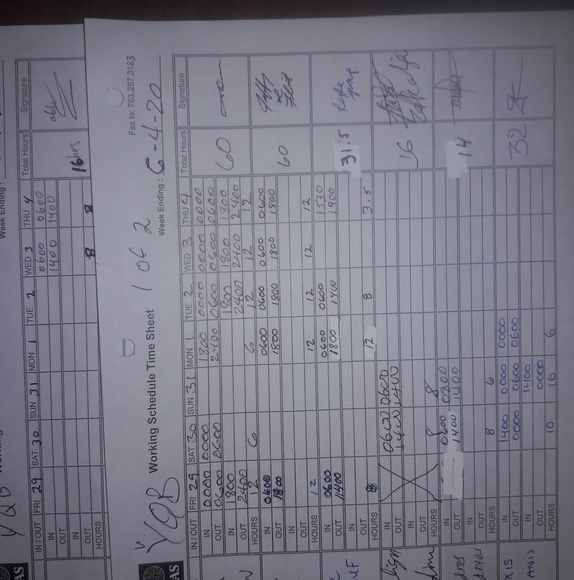 Week Ending:
YQB
IN / OUT FRI 29 SAT 30 SUN 31 MON 1 TUE 2 WED 3 THU 4 Total Hours Signature
IN 0600 0600
OUT 1400 1400
IN
OUT
HOURS 8 8 16hrs
Fax to: 763.287.3123
YQB Working Schedule Time Sheet 1 of 2 Week Ending: 6-4-20
IN / OUT FRI 29 SAT 30 SUN 31 MON 1 TUE 2 WED 3 THU 4 Total Hours Signature
IN 0000 0000 1800 0000 0000 0000
OUT 0600 0600 2400 0600 0600 0600
IN 1800 1800 1800 1800
OUT 2400 2400 2400 2400
HOURS 12 6 6 12 12 12 60
IN 0600 0600 0600 0600 0600
OUT 1800 1800 1800 1800 1800
IN
OUT
HOURS 12 12 12 12 60
IN 0600 0600 0600 1530
OUT 1400 1800 1400 1900
IN
OUT
HOURS 8 12 8 3.5 31.5
IN 0600 0600
OUT 1400 1400
IN
OUT
HOURS 8 8 16
IN 0600 0800
OUT 1400 1400
IN
OUT
HOURS 8 6 14
IN 1400 0000 0000
OUT 0000 0600 0600
IN 1400
OUT 0000
HOURS 10 16 6 32